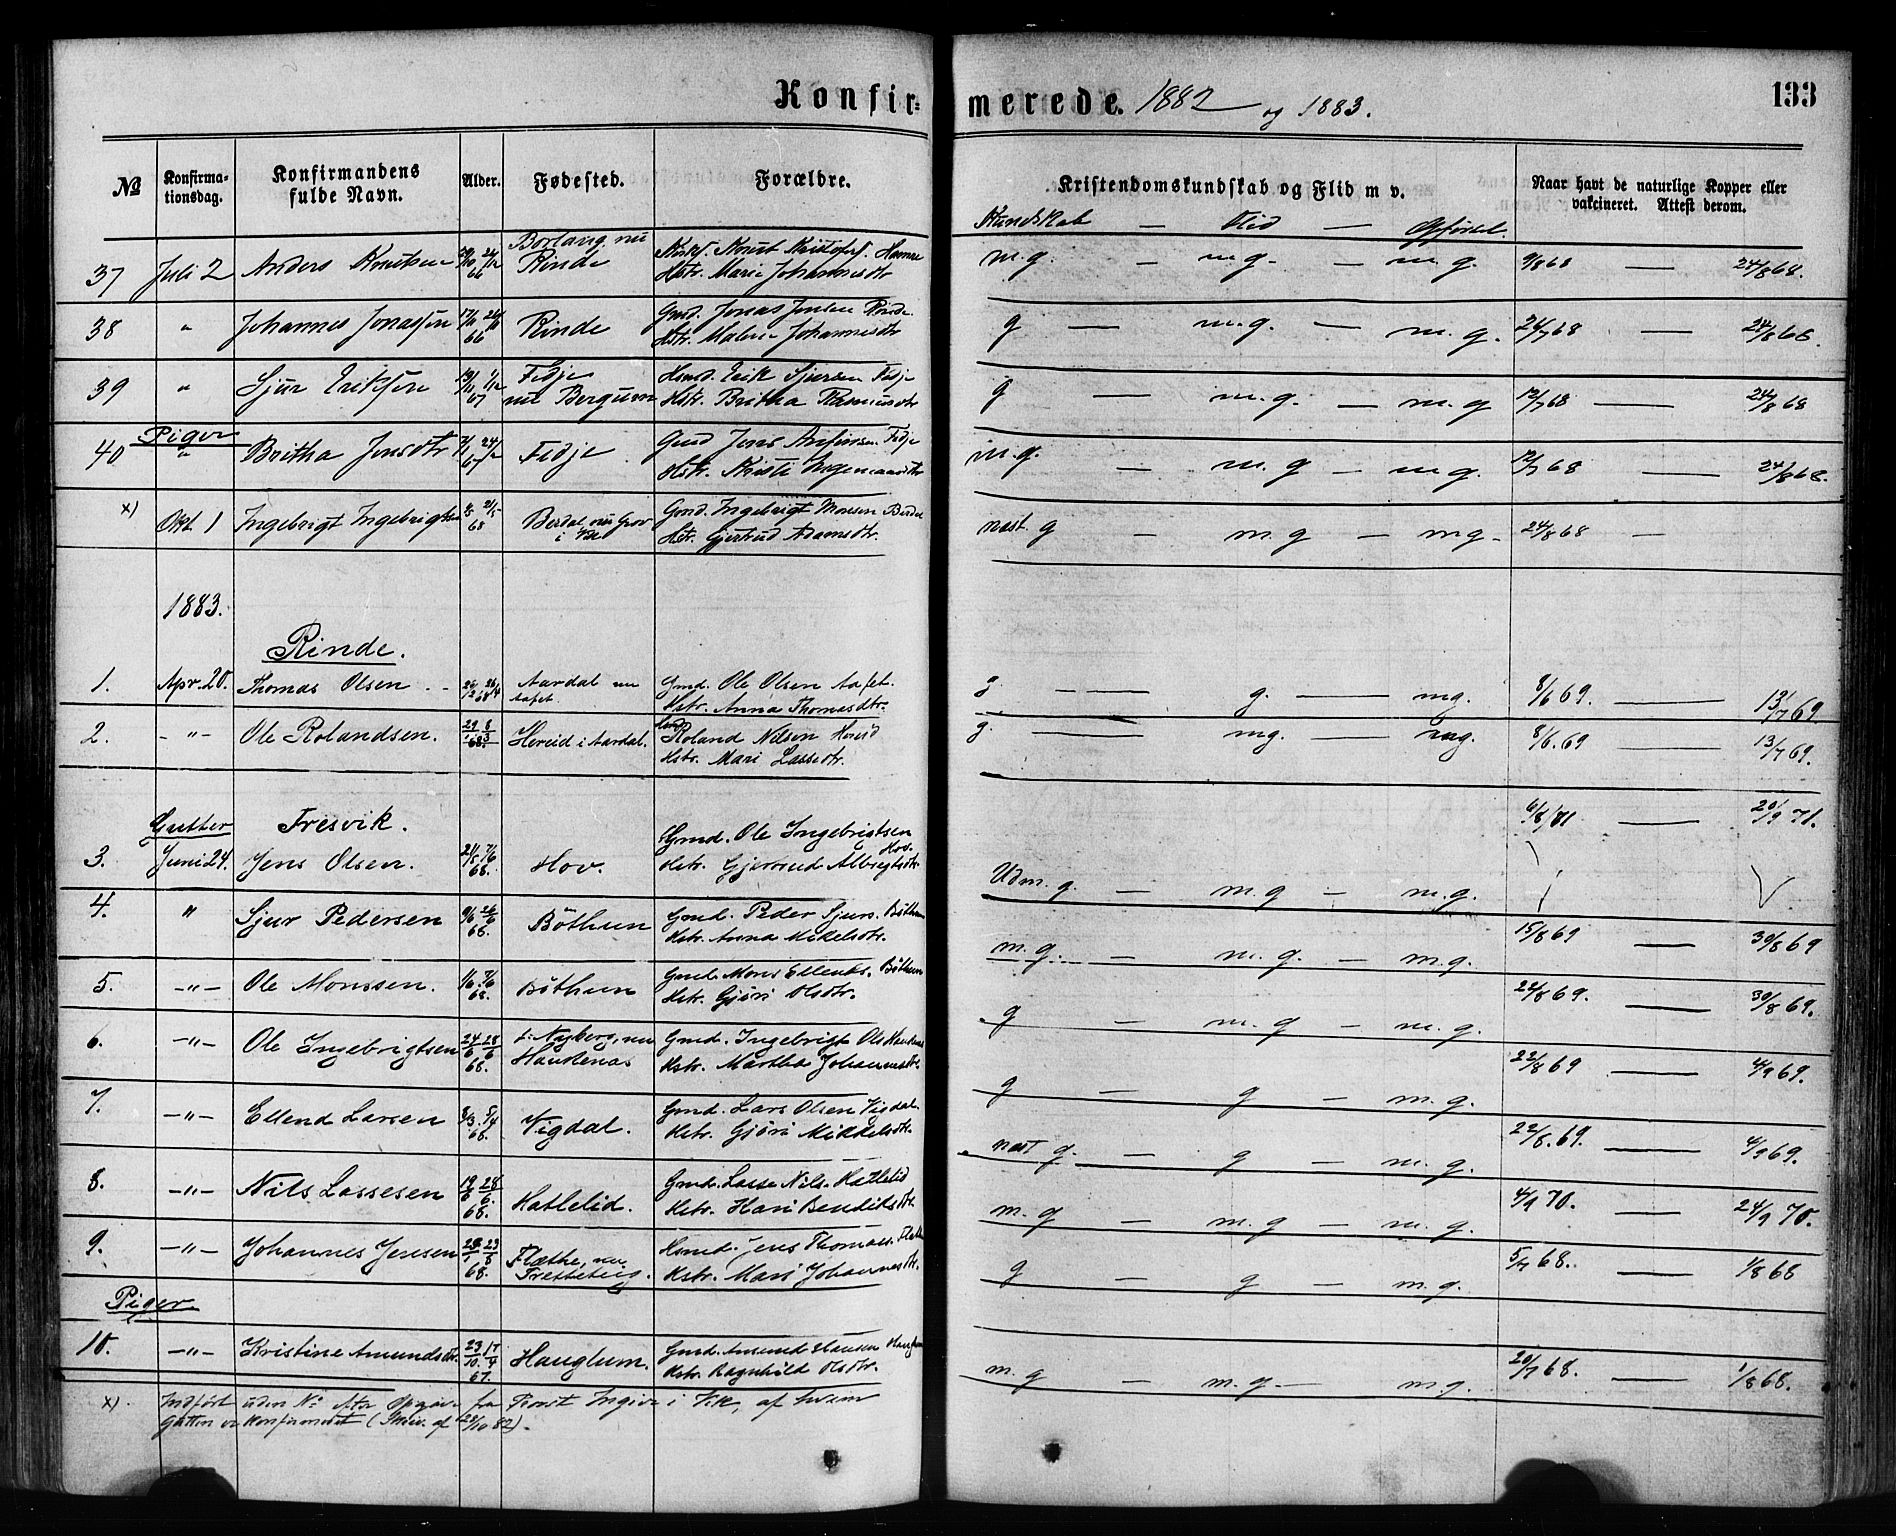 Konfirmerede. 1882 og 1883. 133
№ Konfirmationsdag. Konfirmandens fulde Navn. Alder. Fødested. Forældre. Kristendomskundskab og Flid m v. Naar havt de naturlige Kopper eller vakcineret. Attest derom.
Kundskab — Flid — Opførsel.
37 Juli 2 Anders Knutsen 66 Borlaug, nu Rinde
Hstr. Mari Johannesdtr m.g. — m.g. — m.g. 9/8 68 — 24/8 68.
38 " Johannes Jonassen 66 Rinde Gmd. Jonas Rinde
Hstr. Johannesdtr g — m.g. — m.g. 24/7 68 — 24/8 68.
39 " Sjur Eriksen 67 Fedje nu Bergum Erik Fedje
Hstr. Britha Rasmusdtr g — m.g. — m.g 12/7 68 — 24/8 68
Piger
40 " Britha Jensdtr 67 Fedje Gmd Jens Fedje
Hstr. Kristi m.g. — m.g — m.g. 12/7 68 — 24/8 68.
x) Okt 1 Ingebrigt Ingebrigtsen 68 Berdal nu Grov i Vik Gmd. Ingebrigt Monsen Berdal
Hstr. Gjertrud Adamsdtr. næst. g — m.g — mg. 24/8 68 —
1883.
Rinde.
1. Apr. 20. Thomas Olsen Aardal nu Aafet. Gmd. Ole Olsen Aafet.
Hstr. Anna Thomasdtr. g. — g. — mg. 8/6 69. — 13/7 69
2. -"- Ole Rolandsen. 29/1 8/3 68. Hereid i Aardal. Roland Nilsen Hereid
Hstr. Mari Lassedtr. g. — mg. — mg. 8/6. 69 — 13/7 69.
Gutter Fresvik. 20/9 71.
3. Juni 24. Jens Olsen. 68. Hov. Gmd. Ole Ingebrigtsen Hov.
Hstr. Gjertrud Albrigtsdtr. Udm. g. — m.g — m.g.
4. " Sjur Pedersen 9/6 26/6 68. Böthun Gmd. Peder Sjurs. Böthun
Hstr. Anna Mikelsdtr. m.g. — m.g. — m.g. 15/8 69 — 30/8 69
5. -"- Ole Monssen. 1/6 7/6 68. Böthun Gmd. Mons Ellends. Böthun
Hstr. Gjöri Olsdtr. g — m.g — m.g. 22/8 69. — 30/8 69.
6. -"- Ole Ingebrigtsen 24/6 28/6 68. Nyberg, nu Haukenæs Gmd. Ingebrigt Ols Haukenæs
Hstr. Martha Johannesdtr. g — g — m.g. 22/8 69 — 4/9 69.
7. -"- Ellend Larsen 8/3 5/4 68. Vigdal. Gmd. Lars Olsen Vigdal.
Hstr. Gjöri Mikkelsdtr. næst g. — g — m.g. 22/8. 69. — 4/9 69.
8. -"- Nils Lassesen 19/6 28/6. 68. Hatlelid. Gmd. Lasse Nils. Hatlelid
Hstr. Kari Bendiksdtr m.g — m.g — m.g. 4/9 70. — 24/9 70.
9. -"- Johannes Jensen 68. Flæthe, nu Gmd. Jens Thomæs. Flæthe
Hstr. Mari Johannesdtr. g — g — m.g. 5/7 68. — 1/8 68
Piger.
10. -"- Kristine Amundsdtr. 23/10. 17/4 67. Hauglum. Gmd. Amund Hansen Hauglum
Hstr. Ragnhild Olsdtr. m.g — m.g. — m.g. 20/7 68. — 1/8 68.
x) Indført uden No efter Opgave fra Provst i Vik, af hvem
Gutten er konfirmeret (Skriv. af 28/10 82).